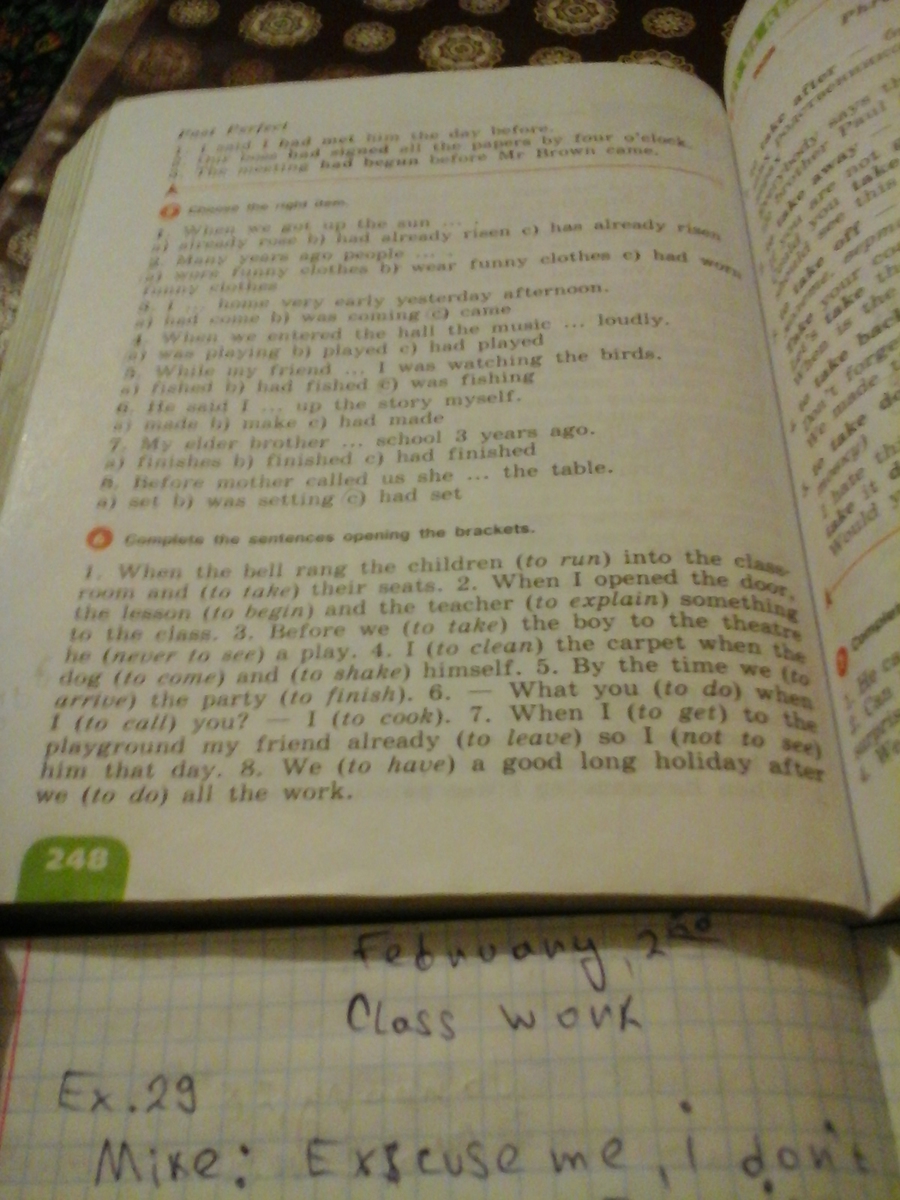 Past Perfect
1. I said I had met him the day before.
2. Our boss had signed all the papers by four o'clock.
3. The meeting had begun before Mr Brown came.
Choose the right item.
1. When we got up the sun ... .
a) already rose b) had already risen c) has already risen
2. Many years ago people ... .
a) wore funny clothes b) wear funny clothes c) had worn
funny clothes
3. I ... home very early yesterday afternoon.
a) had come b) was coming c) came
4. When we entered the hall the music ... loudly.
a) was playing b) played c) had played
5. While my friend ... I was watching the birds.
a) fished b) had fished c) was fishing
6. He said I ... up the story myself.
a) made b) make c) had made
7. My elder brother ... school 3 years ago.
a) finishes b) finished c) had finished
8. Before mother called us she ... the table.
a) set b) was setting c) had set
6 Complete the sentences opening the brackets.
1. When the bell rang the children (to run) into the class-
room and (to take) their seats. 2. When I opened the door,
the lesson (to begin) and the teacher (to explain) something
to the class. 3. Before we (to take) the boy to the theatre
he (never to see) a play. 4. I (to clean) the carpet when the
dog (to come) and (to shake) himself. 5. By the time we (to
arrive) the party (to finish). 6. — What you (to do) when
I (to call) you? — I (to cook). 7. When I (to get) to the
playground my friend already (to leave) so I (not to see)
him that day. 8. We (to have) a good long holiday after
we (to do) all the work.
248
take after —
says
brother Paul
take away —
are not
you take
see this
take off —
your
take
When is the
take back
don't forget
We made
take
I hate
take it
Would
1. He
2. Can
4. We
February, 2nd
Class work
Ex. 29
Mike: Exscuse me, i don't